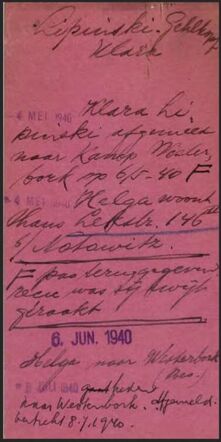 Lipinski-
Klara
4 MEI 1940 Klara Li-
pinski afgemeld
naar Kamp Wester
bork op 6/5-40 F
4 MEI 1940 Helga woont
thans Lekstr. 146
b/ Notowitz.
F pas teruggegeven
recu was zij kwijt
geraakt
6. JUN. 1940
Helga naar Westerbork
8 JULI 1940
naar Westerbork. Afgemeld.
bericht 8.7.1940.